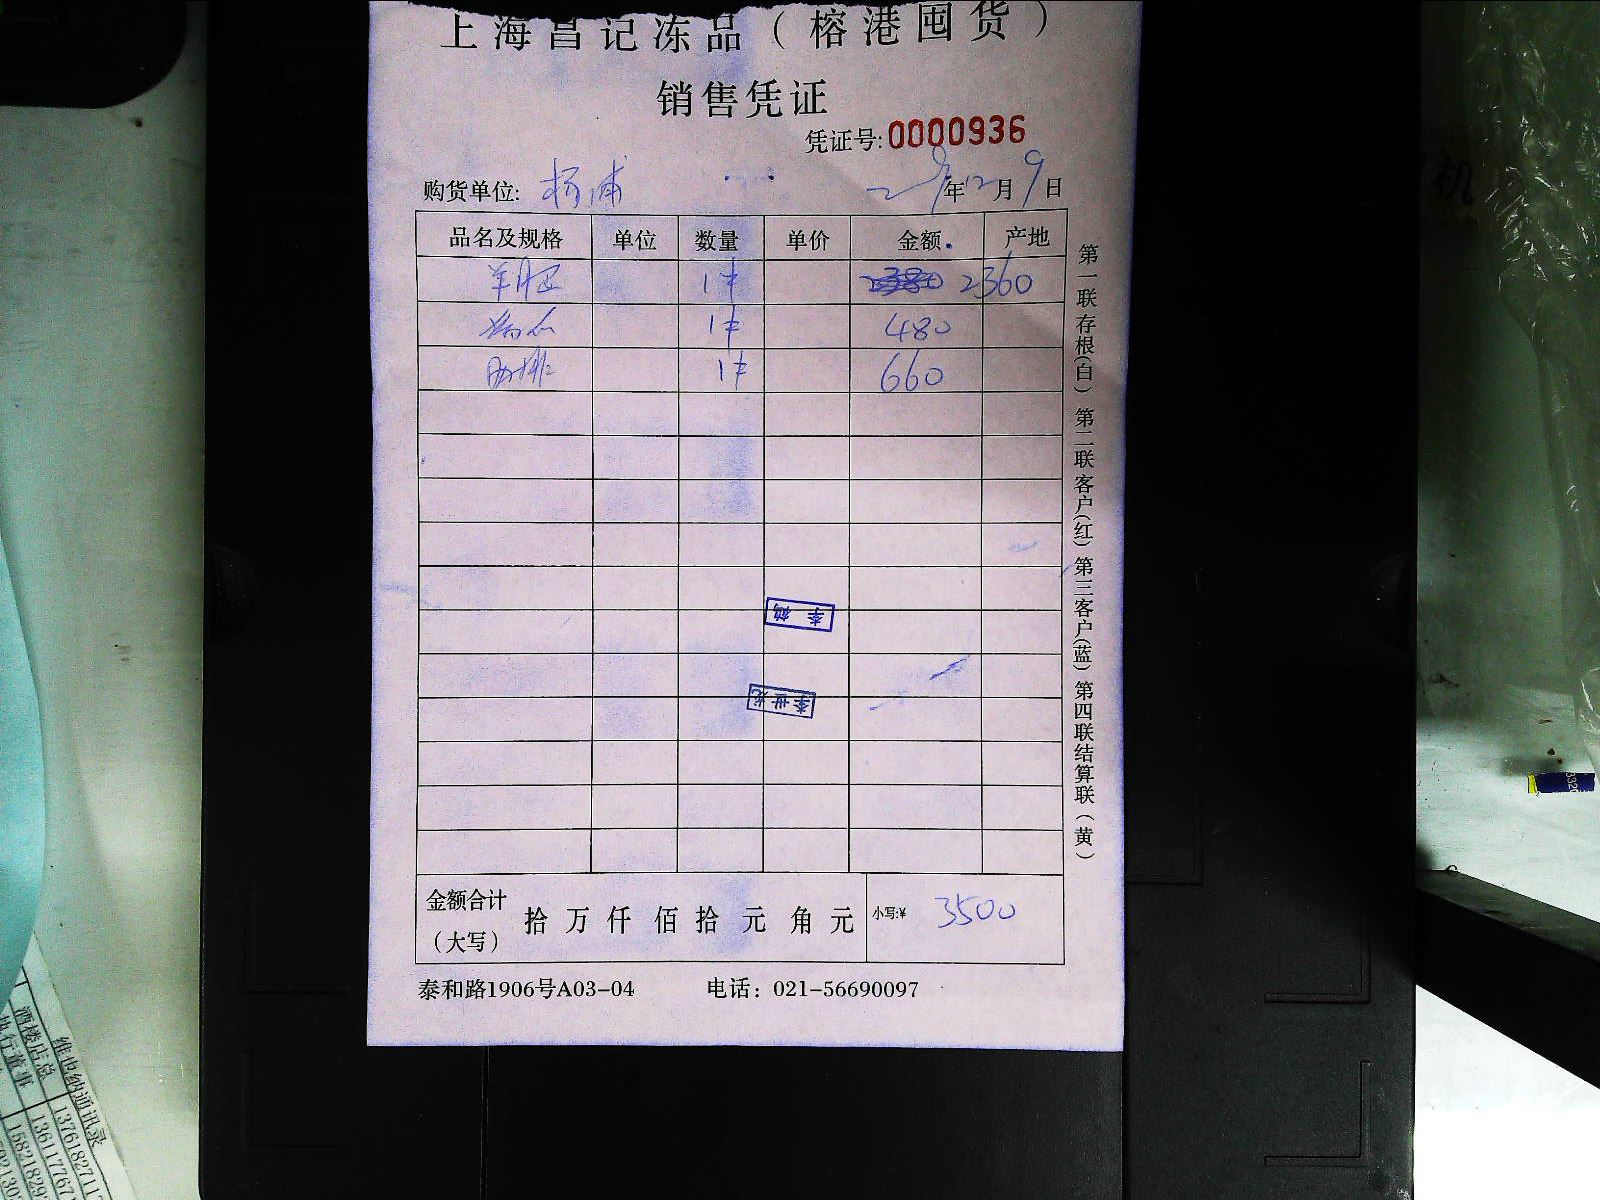 上海昌记冻品（榕港囤货）
销售凭证
凭证号:0000936
购货单位: 杨浦 年12月9日
品名及规格 单位 数量 单价 金额 产地
1件 2360
1件 480
1件 660
李鹤
李世龙
金额合计（大写） 拾万仟佰拾元角元 小写:¥ 3500
泰和路1906号A03-04 电话：021-56690097
第一联存根(白) 第二联客户(红) 第三客户(蓝) 第四联结算联(黄)
维也纳通讯录
酒楼店总
执行董事